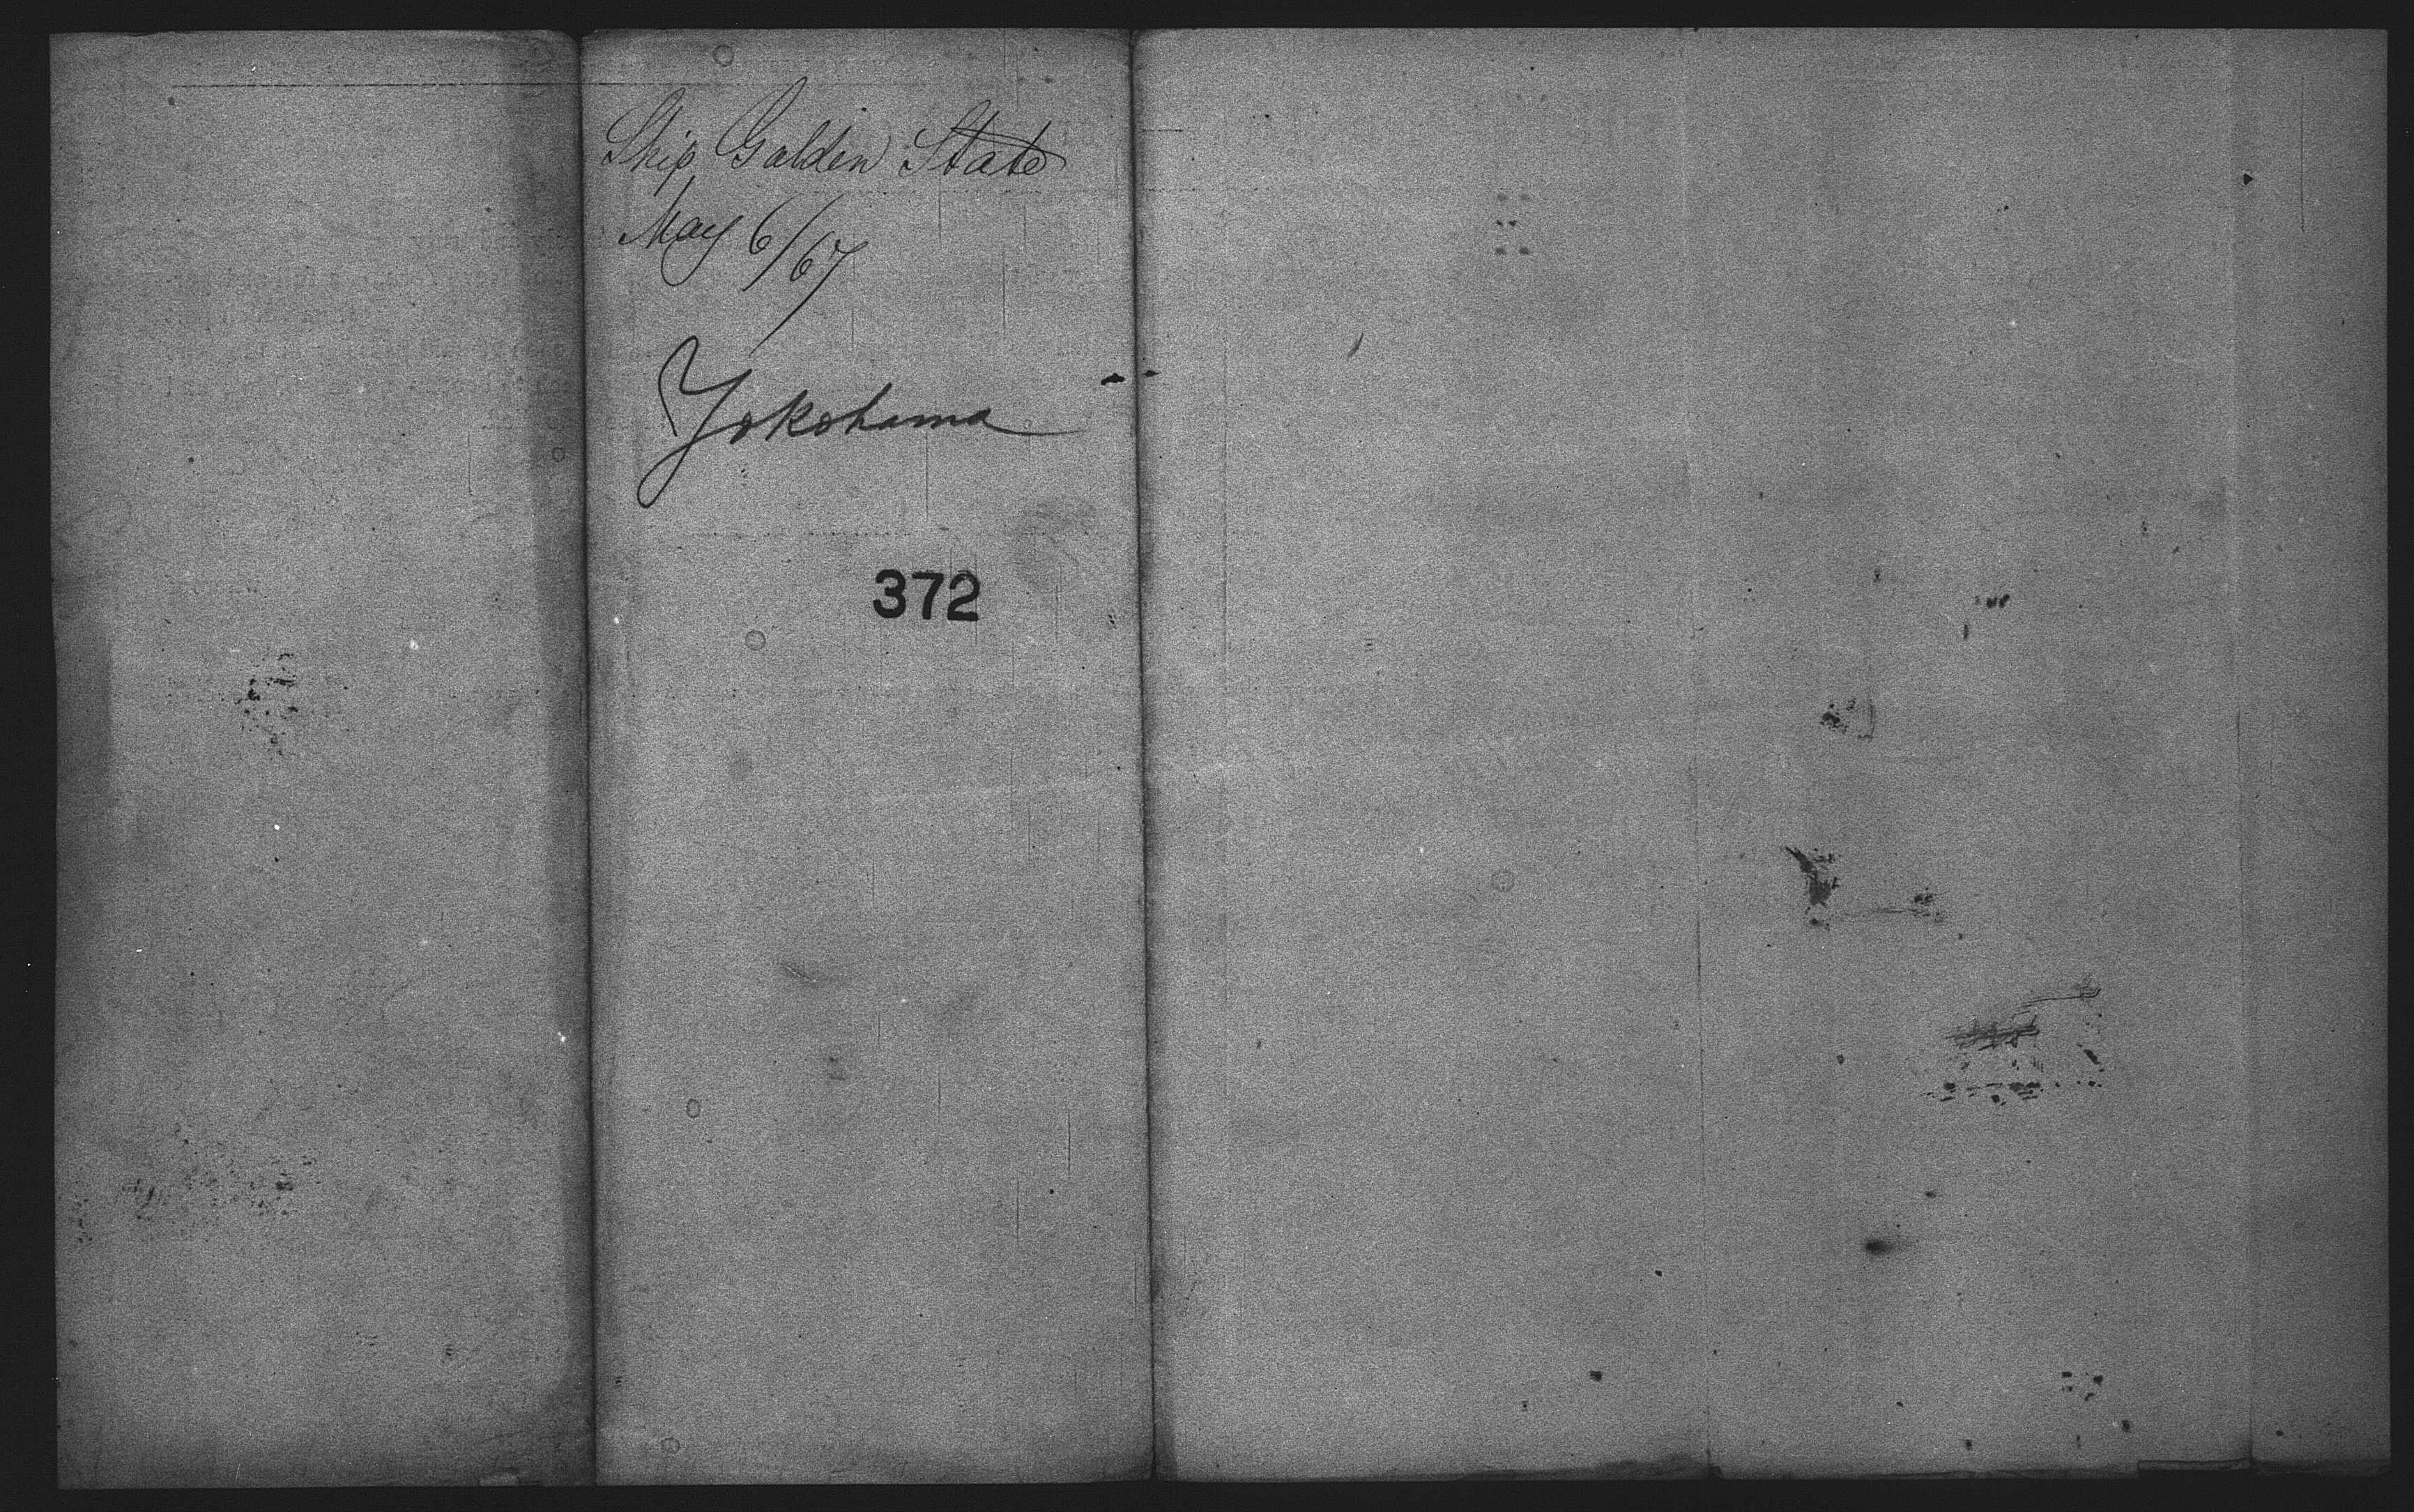 Ship Golden State
May 6/67
Yokohama
372